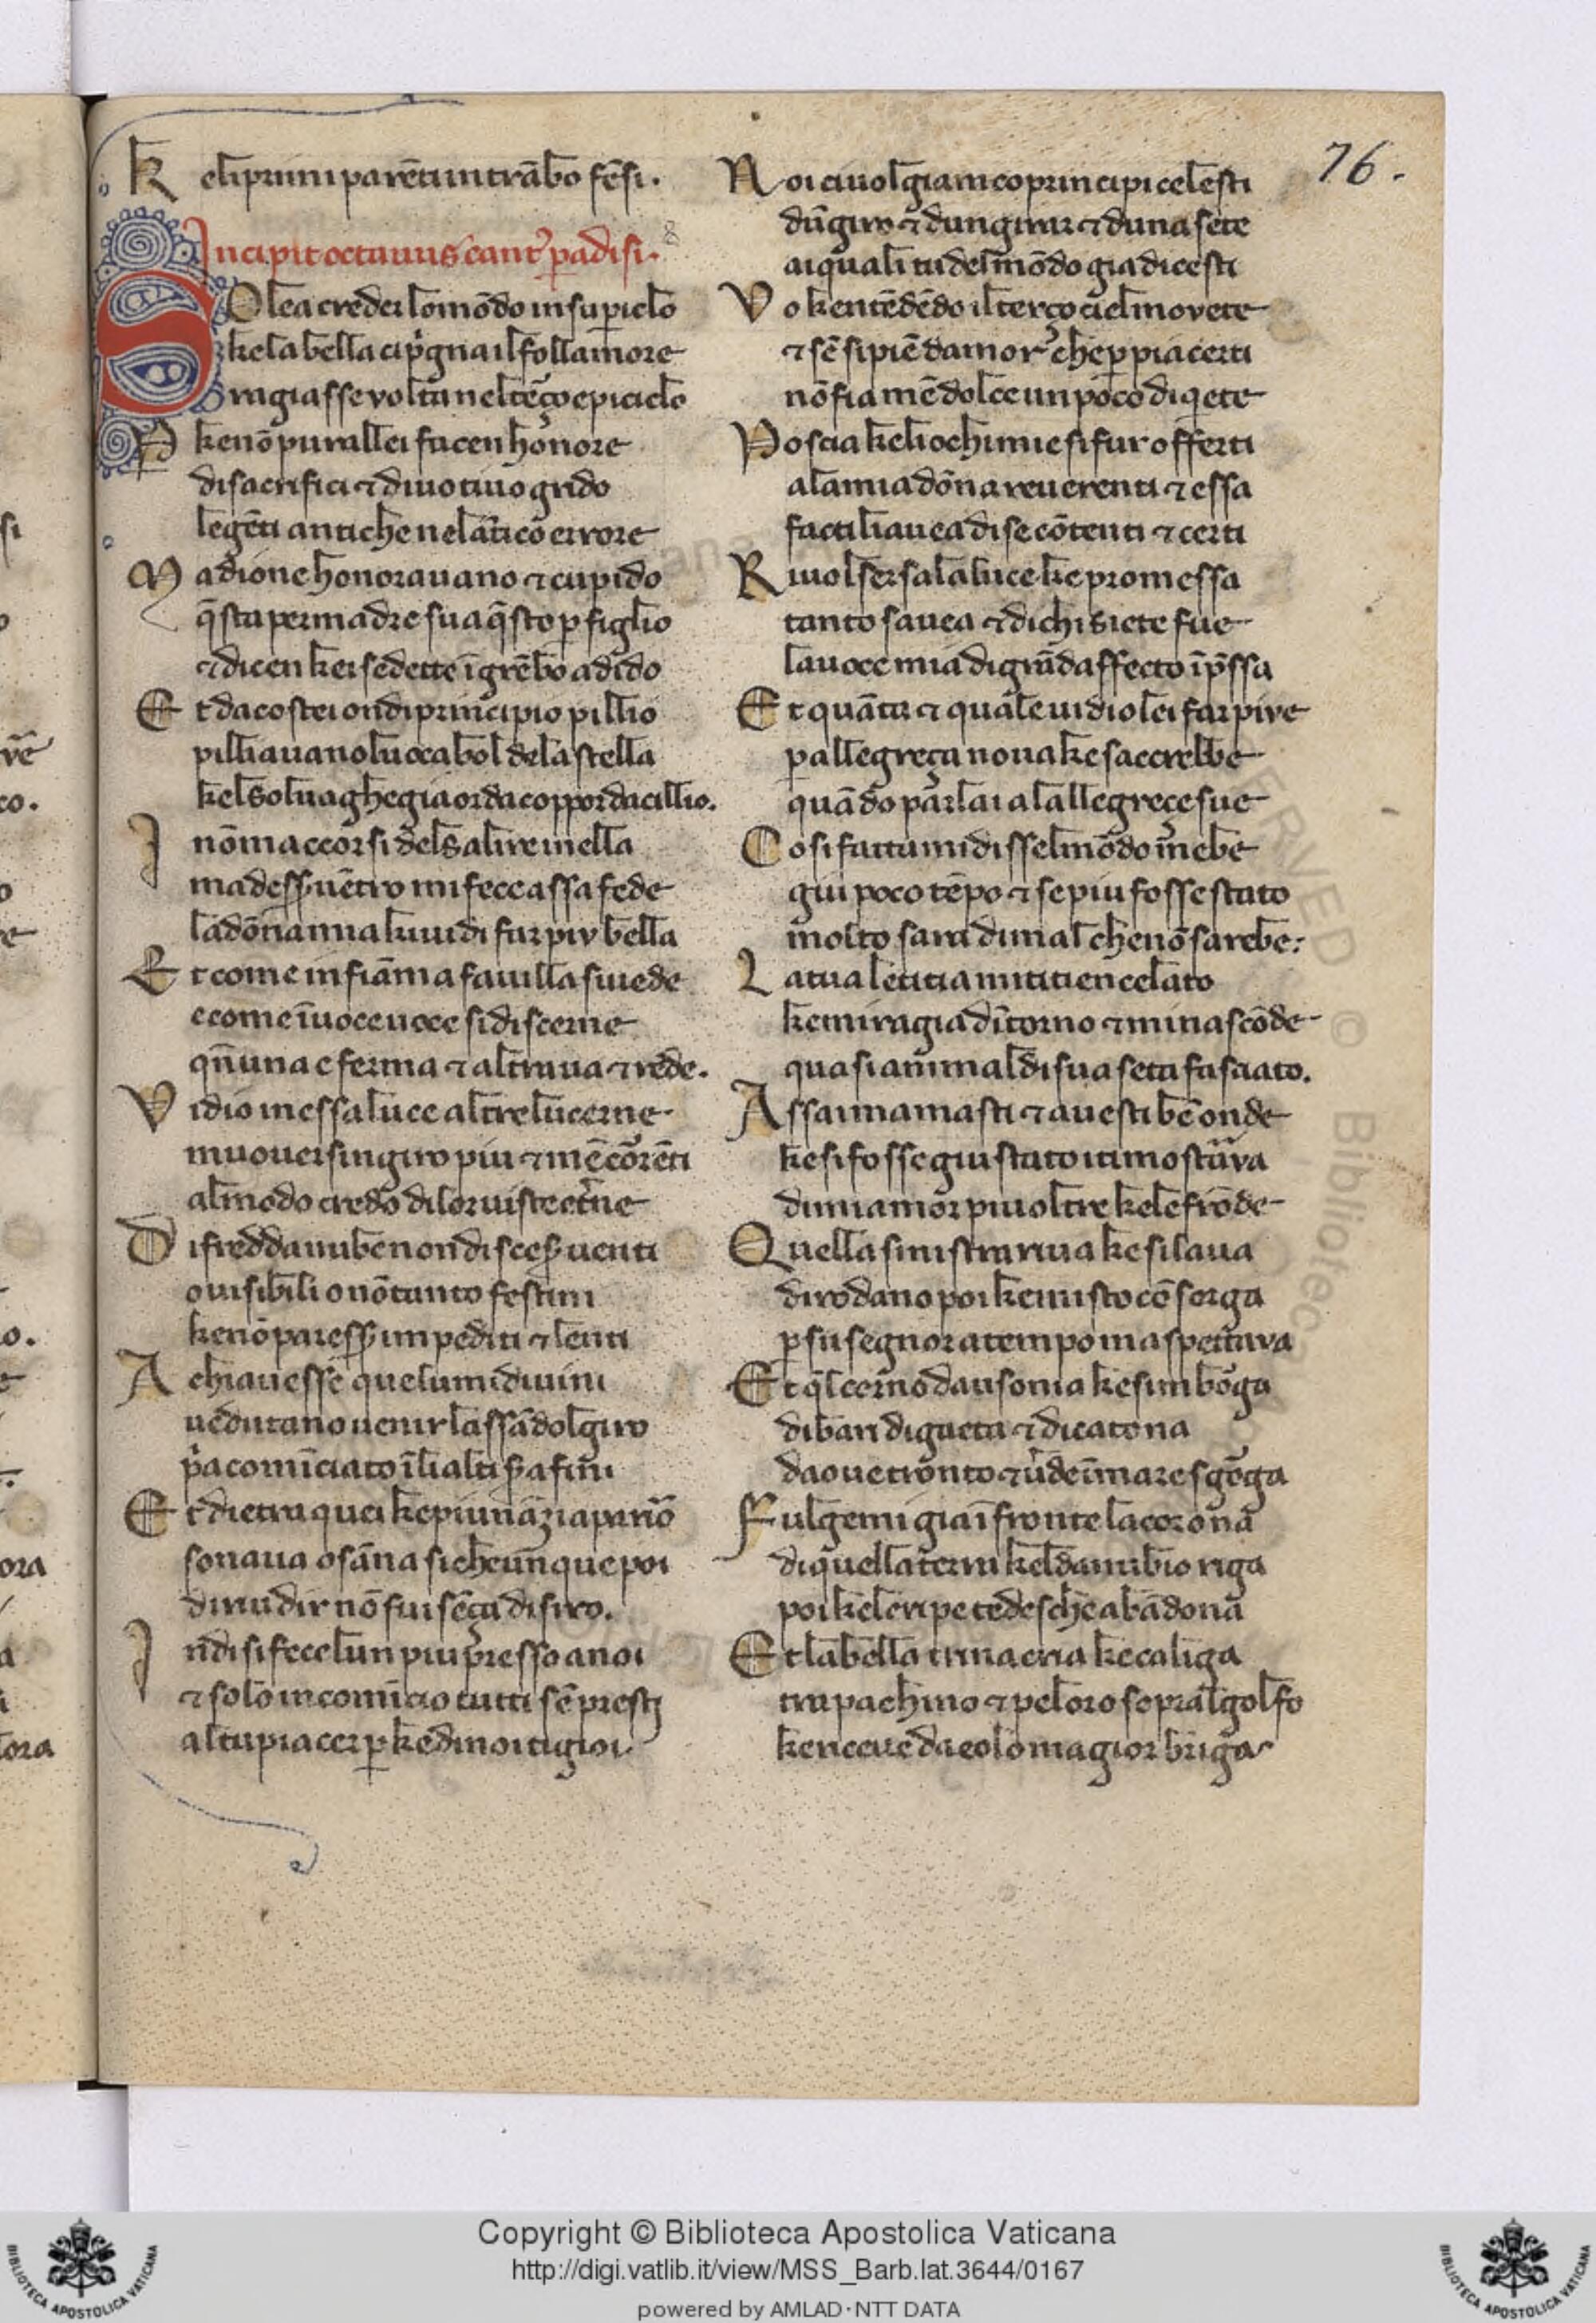 K eli primi parēti intrābo fēsi.
Incipit octavus cant' padisi. 8
SOlea creder lo mōdo in su periclo
ke la bella cip'gna il folle amore
ragiasse volta nel tēço epiciclo
P kenō pur allei facen honore
di sacrifici ⁊ di uotiuo grido
le gēti antiche ne lātico errore
M a dione honorauano ⁊ cupido
q̄sta per madre sua q̄sto p figlio
⁊ dicen kei sedette ī grēbo a dido
E t da costei ondi principio pillio
pilliauano l uocabol de la stella
kel sol uagheggia or da coppor da cillio.
I nō maccorsi del salire in ella
ma dess' uētro mi fece assa fede
la dōna mia ki uidi far piu bella
E t come in fiāma fauilla si uede
e come ī uoce uoce si discerne
qn̄ una e ferma ⁊ altra ua ⁊ rede.
V idio in essa luce altre lucerne
muouersi in giro piu ⁊ mē corēti
al modo credo di lor uiste et'ne
D i fredda nube non disces' uenti
o uisibili o nō tanto festini
ke nō paress' impediti ⁊ lenti
A chi auesse que lumi diuini
ueduta no uenir lassādol giro
p'a comīciato ī li alti s'afini
E t dietra quei ke piu nāzi apariō
sonaua osāna si che unque poi
di riudir nō fui sēça disiro.
I ndi si fece lun piu presso a noi
⁊ solo incomīcio tutti sē presti
al tu piacer p ke di noi ti gioi
76.
N oi ci uolgiam co principi celesti
dū giro ⁊ dun girar ⁊ duna sete
ai quali tu del mōdo gia dicesti
V o kentēdēdo il terço ciel movete
⁊ sē si piē damor che per piacerti
nō fia mē dolce un poco di qete
P oscia ke li ochi mie si fur offerti
a la mia dōna reuerenti ⁊ essa
facti li auea di se cōtenti ⁊ certi
R iuolsersa la luce ke promessa
tanto sauea ⁊ di chi siete fue
la uoce mia di grād affecto īp̄ssa
E t quāta ⁊ quale uidio lei far pive
p allegreça noua ke saccrebbe
quādo parlai a lallegreçe sue
C osi fatta mi disse l mōdo mebe
giu poco tēpo ⁊ se piu fosse stato
molto sara di mal che nō sarebe:
L a tua letitia mi ti tien celato
ke mi ragia dītorno ⁊ mi nascōde
quasi animal di sua seta fasciato.
A ssai mamasti ⁊ auesti bē onde
ke si fosse giu stato i ti mostrava
di mi amor piu oltre ke le frōde
Q uella sinistra riua ke si laua
di rodano poi ke misto cō sorga
p su segnor a tempo maspettava
E t q̄l corno dausonia ke simborga
di bari di gaeta ⁊ di catona
da oue tronto ⁊ u'de ī mare sgorga
F ulgemi gia ī fronte la corona
di quella terra kel danubio riga
poi ke le ripe tedesche abādona
E t la bella trinacria ke caliga
tra pachino ⁊ peloro sopral golfo
ke riceue da eolo magior briga
Copyright © Biblioteca Apostolica Vaticana
http://digi.vatlib.it/view/MSS_Barb.lat.3644/0167
powered by AMLAD·NTT DATA